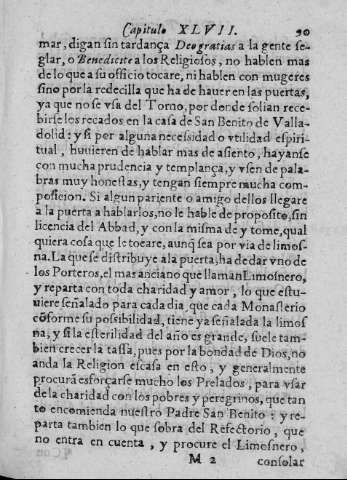 Capitulo XLVII. 90
mar, digan sin tardança Deogratias a la gente se-
glar, o Benedicite a los Religiosos, no hablen mas
de lo que a su officio tocare, ni hablen con mugeres
sino por la redecilla que ha de hauer en las puertas,
ya que no se vsa del Torno, por donde solian rece-
birse los recados en la casa de San Benito de Valla-
dolid: y si por alguna necessidad o vtilidad espiri-
tual, huuieren de hablar mas de asiento, hayanse
con mucha prudencia y templança, y vsen de pala-
bras muy honestas, y tengan siempre mucha com-
posicion. Si algun pariente o amigo dellos llegare
a la puerta a hablarlos, no le hable de proposito, sin
licencia del Abbad, y con la misma de y tome, qual
quiera cosa que le tocare, aunq̃ sea por via de limos-
na. La que se distribuye a la puerta, ha de dar vno de
los Porteros, el mas anciano que llaman Limosnero,
y reparta con toda charidad y amor, lo que estu-
uiere señalado para cada dia, que cada Monasterio
cõforme su possibilidad, tiene ya señalada la limos
na, y si la esterilidad del año es grande, suele tam-
bien crecer la tassa, pues por la bondad de Dios, no
anda la Religion escasa en esto, y generalmente
procurã esforçarse mucho los Prelados, para vsar
de la charidad con los pobres y peregrinos, que tan
to encomienda nuestro Padre San Benito: y re-
parta tambien lo que sobra del Refectorio, que
no entra en cuenta, y procure el Limosnero,
M 2 consolar